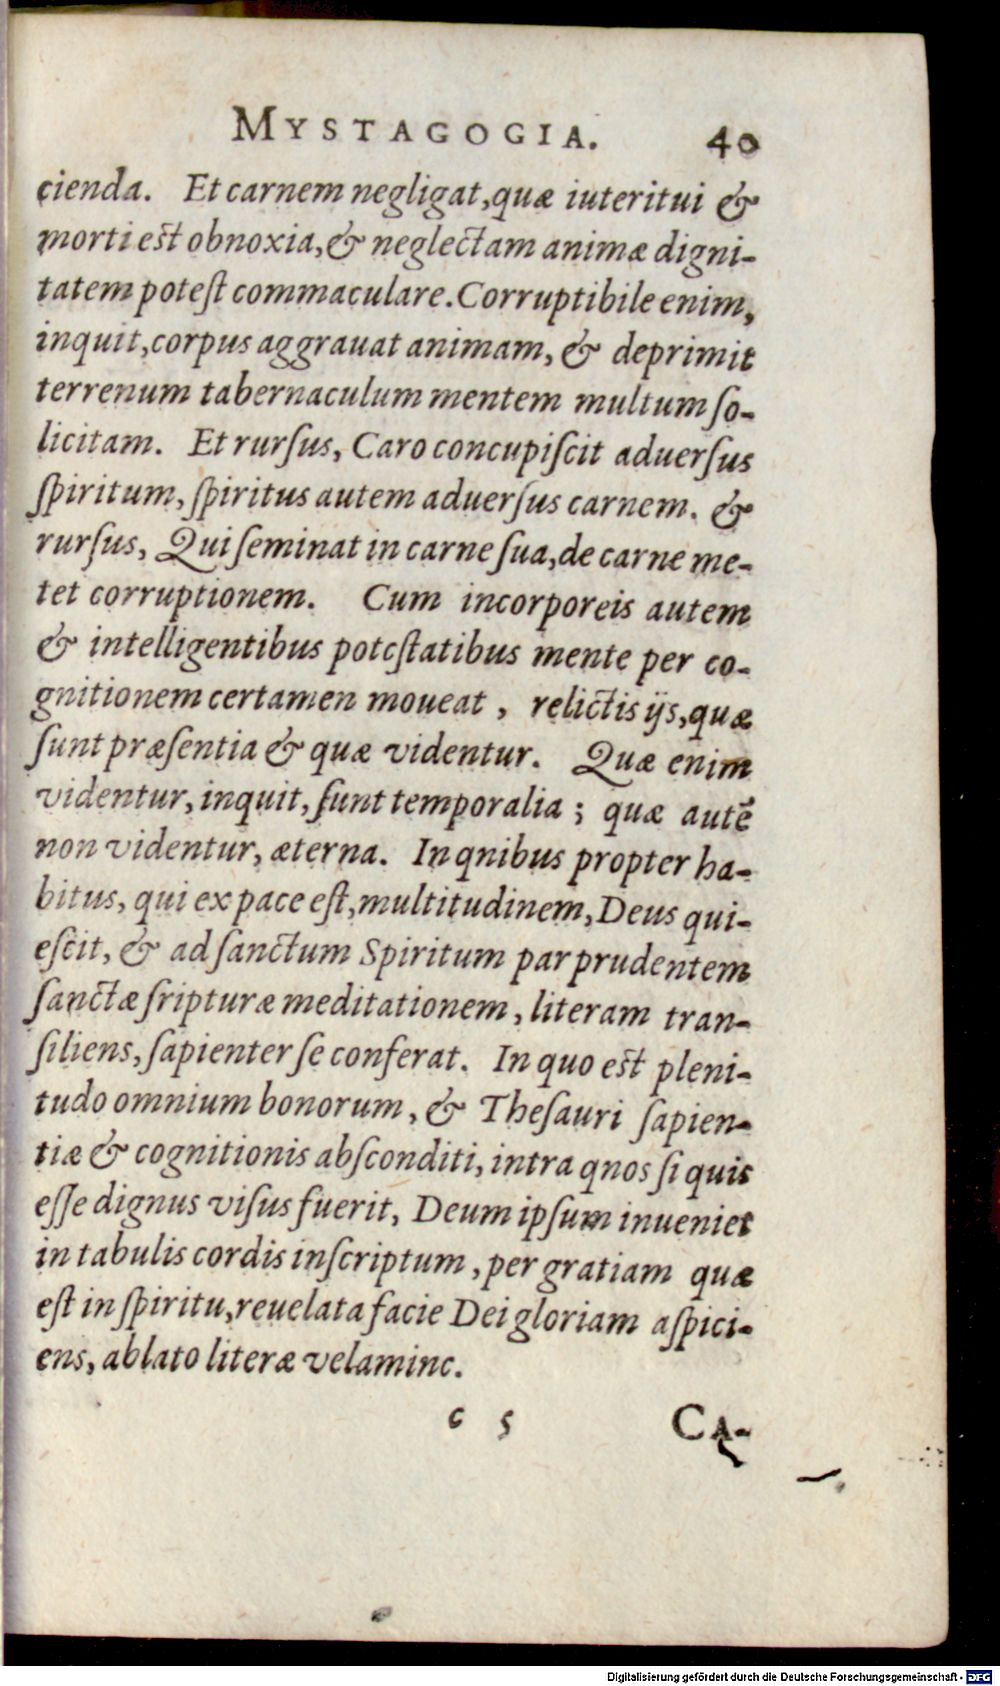 MYSTAGOGIA. 40
cienda. Et carnem negligat, quæ iuteritui &
morti est obnoxia, & neglectam animæ digni-
tatem poteſt commaculare. Corruptibile enim,
inquit, corpus aggrauat animam, & deprimit
terrenum tabernaculum mentem multum ſo-
licitam. Et rurſus, Caro concupiſcit aduerſus
ſpiritum, ſpiritus autem aduerſus carnem. &
rurſus, Qui ſeminat in carne ſua, de carne me-
tet corruptionem. Cum incorporeis autem
& intelligentibus potcſtatibus mente per co-
gnitionem certamen moueat, relictis ijs, quæ
ſunt præſentia & quæ videntur. Quæ enim
videntur, inquit, ſunt temporalia; quæ autē
non videntur, æterna. In qnibus propter ha-
bitus, qui ex pace eſt, multitudinem, Deus qui-
eſcit, & ad ſanctum Spiritum par prudentem
ſanctæ ſripturæ meditationem, literam tran-
ſiliens, ſapienter ſe conferat. In quo est pleni-
tudo omnium bonorum, & Theſauri ſapien-
tiæ & cognitionis abſconditi, intra qnos ſi quis
eſſe dignus viſus fuerit, Deum ipſum inueniet
in tabulis cordis inſcriptum, per gratiam quæ
eſt in ſpiritu, reuelata facie Dei gloriam aſpici-
ens, ablato literæ velaminc.
c 5 CA-
Digitalisierung gefördert durch die Deutsche Forschungsgemeinschaft - DFG